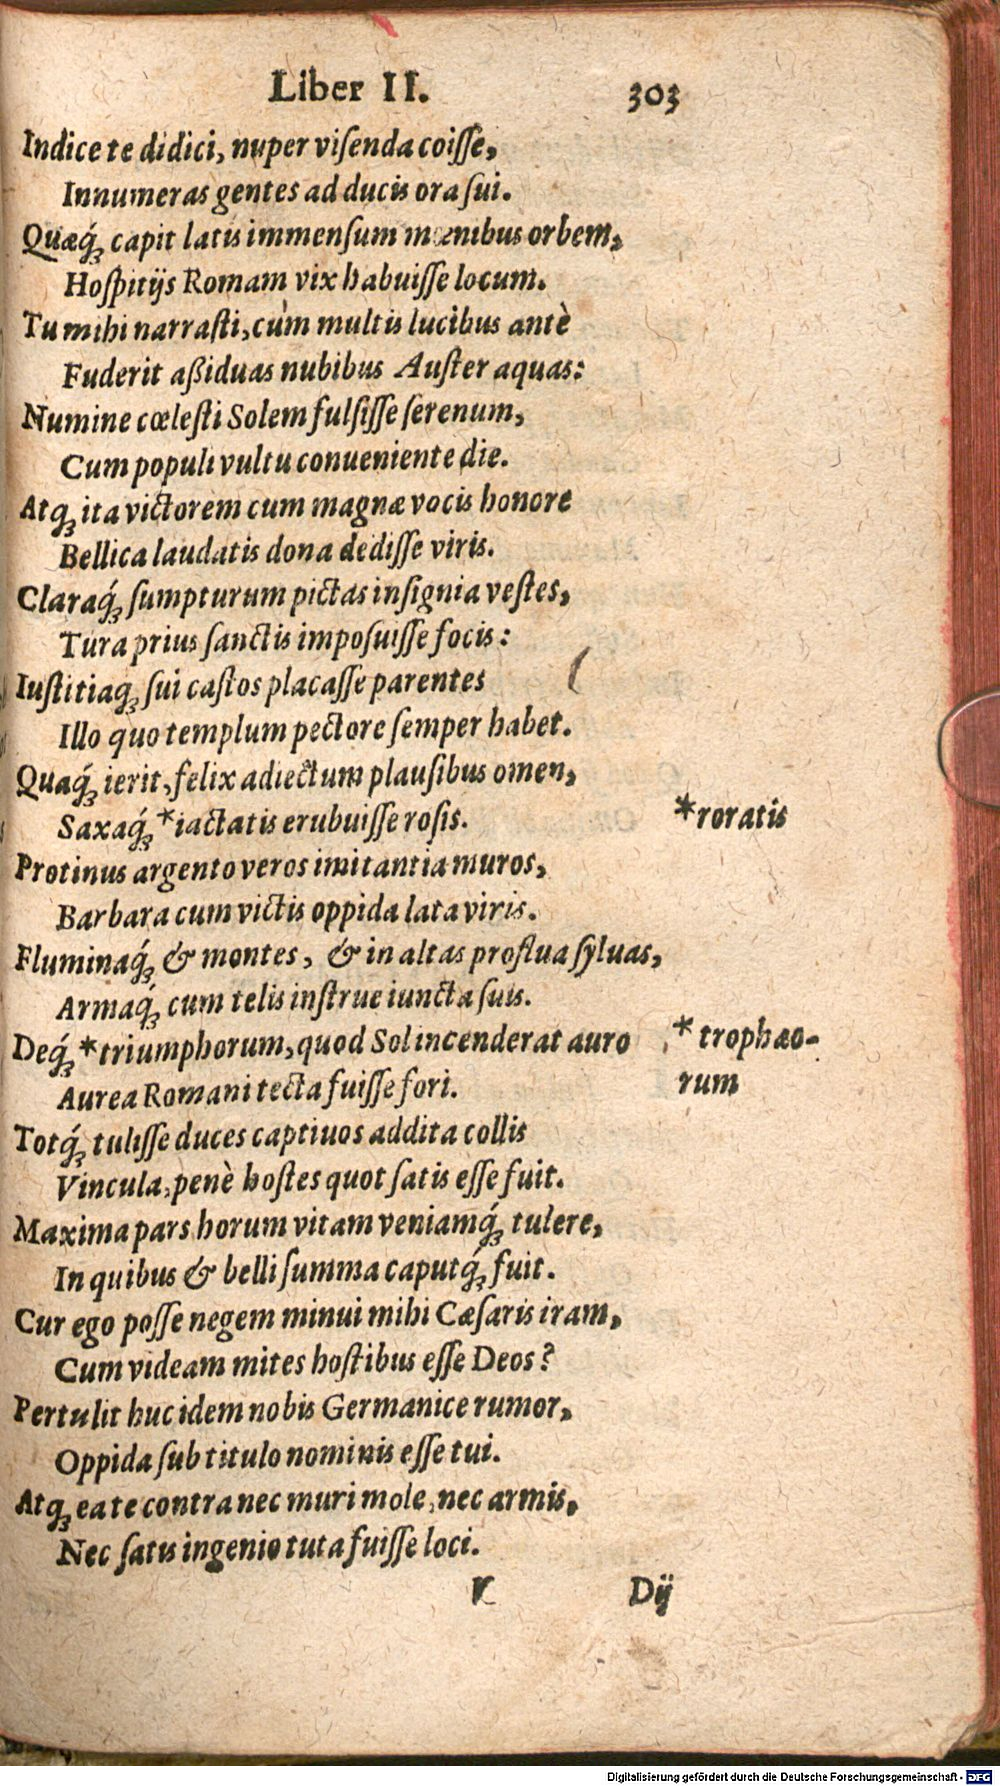 Liber II. 303
Indice te didici, nuper viſenda coiſſe,
Innumeras gentes ad ducis ora ſui.
Quæq́ꝫ capit latis immenſum mœnibus orbem,
Hoſpitijs Romam vix habuiſſe locum.
Tu mihi narraſti, cùm multis lucibus antè
Fuderit aßiduas nubibus Auſter aquas:
Numine cœleſti Solem fulſiſſe ſerenum,
Cum populi vultu conueniente die.
Atqꝫ ita victorem cum magnæ vocis honore
Bellica laudatis dona dediſſe viris.
Claraq́ꝫ ſumpturum pictas inſignia veſtes,
Tura prius ſanctis impoſuiſſe focis:
Iuſtitiaqꝫ ſui caſtos placaſſe parentes
Illo quo templum pectore ſemper habet.
Quaq́ꝫ ierit, felix adiectum plauſibus omen,
Saxaq́ꝫ *iactatis erubuiſſe roſis. *roratis
Protinus argento veros imitantia muros,
Barbara cum victis oppida lata viris.
Fluminaq́ꝫ & montes, & in altas proflua ſyluas,
Armaq́ꝫ cum telis inſtrue iuncta ſuis.
Deq́ꝫ *triumphorum, quod Sol incenderat auro *trophæo-
Aurea Romani tecta fuiſſe fori. rum
Totq́ꝫ tuliſſe duces captiuos addita collis
Vincula, penè hoſtes quot ſatis eſſe fuit.
Maxima pars horum vitam veniamq́ꝫ tulere,
In quibus & belli ſumma caputq́ꝫ fuit.
Cur ego poſſe negem minui mihi Cæſaris iram,
Cum videam mites hoſtibus eſſe Deos?
Pertulit huc idem nobis Germanice rumor,
Oppida ſub titulo nominis eſſe tui.
Atqꝫ ea te contra nec muri mole, nec armis,
Nec ſatis ingenio tuta fuiſſe loci.
V Dij
Digitalisierung gefördert durch die Deutsche Forschungsgemeinschaft - DFG